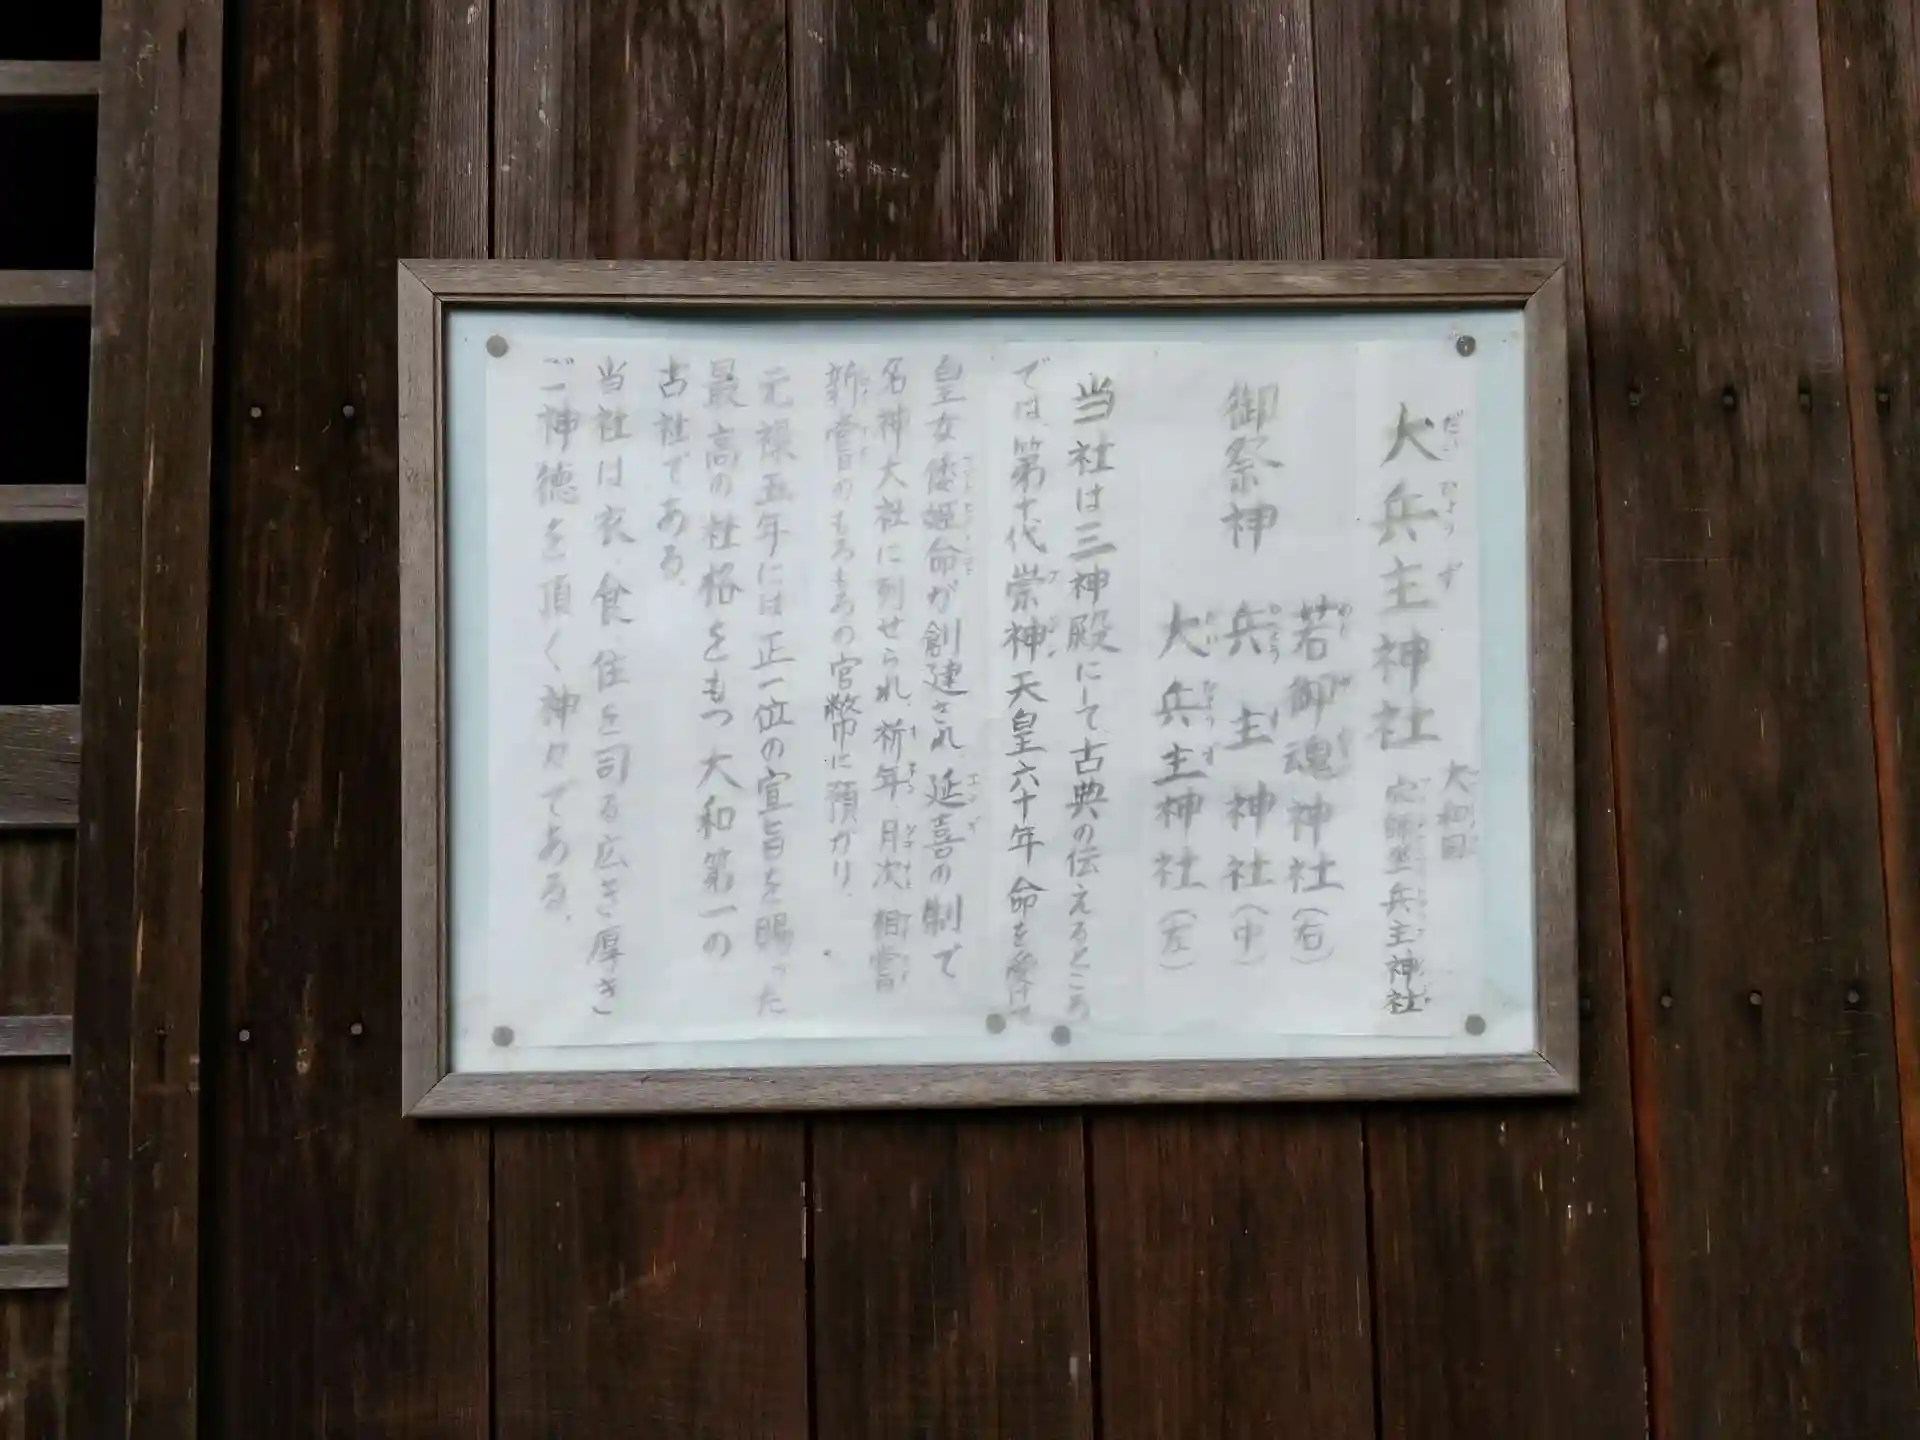 大兵主神社
だい ひょう ず
大和国
穴師坐兵主神社
御祭神
若御魂神社(右)
兵主神社(中)
大兵主神社(左)
だい ひょうず
当社は三神殿にして古典の伝えるところ
では、第十代崇神天皇六十年命を受けて
皇女倭姫命が創建され、延喜の制で
名神大社に列せられ、祈年、月次、相嘗
新嘗のもろもろの官幣に預がり、
元禄五年には正一位の宣旨を賜った
最高の社格をもつ大和第一の
古社である。
当社は衣、食、住を司る広き厚き
ご神徳を頂く神々である。